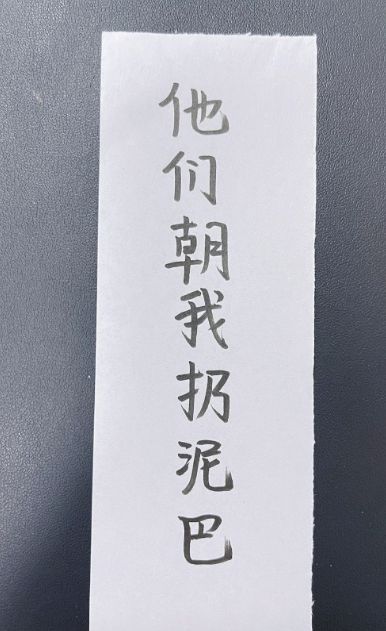 他们朝我扔泥巴